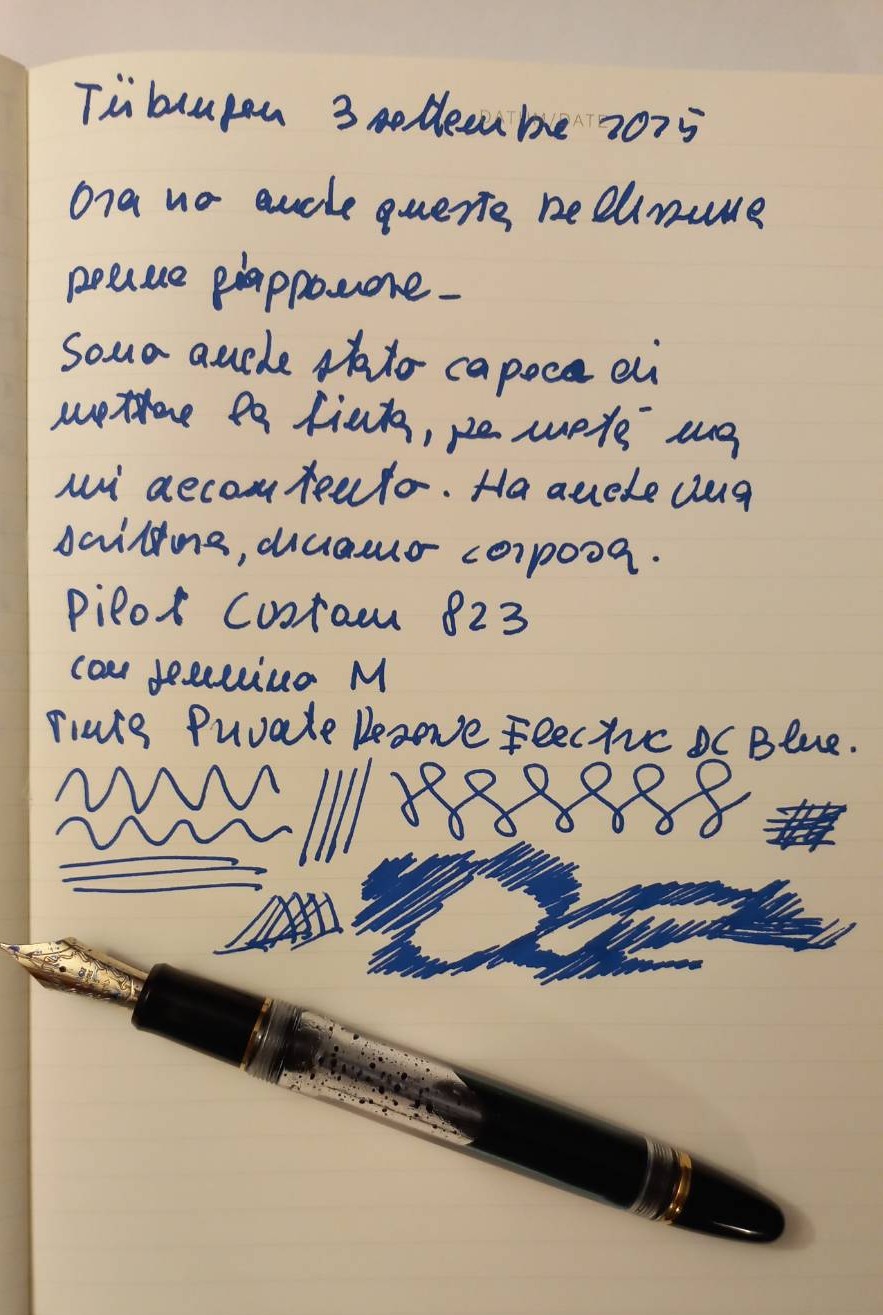 Tübingen 3 settembre 2025
DATUM/DATE
Ora ho anche questa bellissima
penna giapponese -
Sono anche stato capace di
mettere la tinta, per metà ma
mi accontento. Ha anche una
scrittura, diciamo corposa.
Pilot Custom 823
con pennino M
Tinta Private Reserve Electric DC Blue.